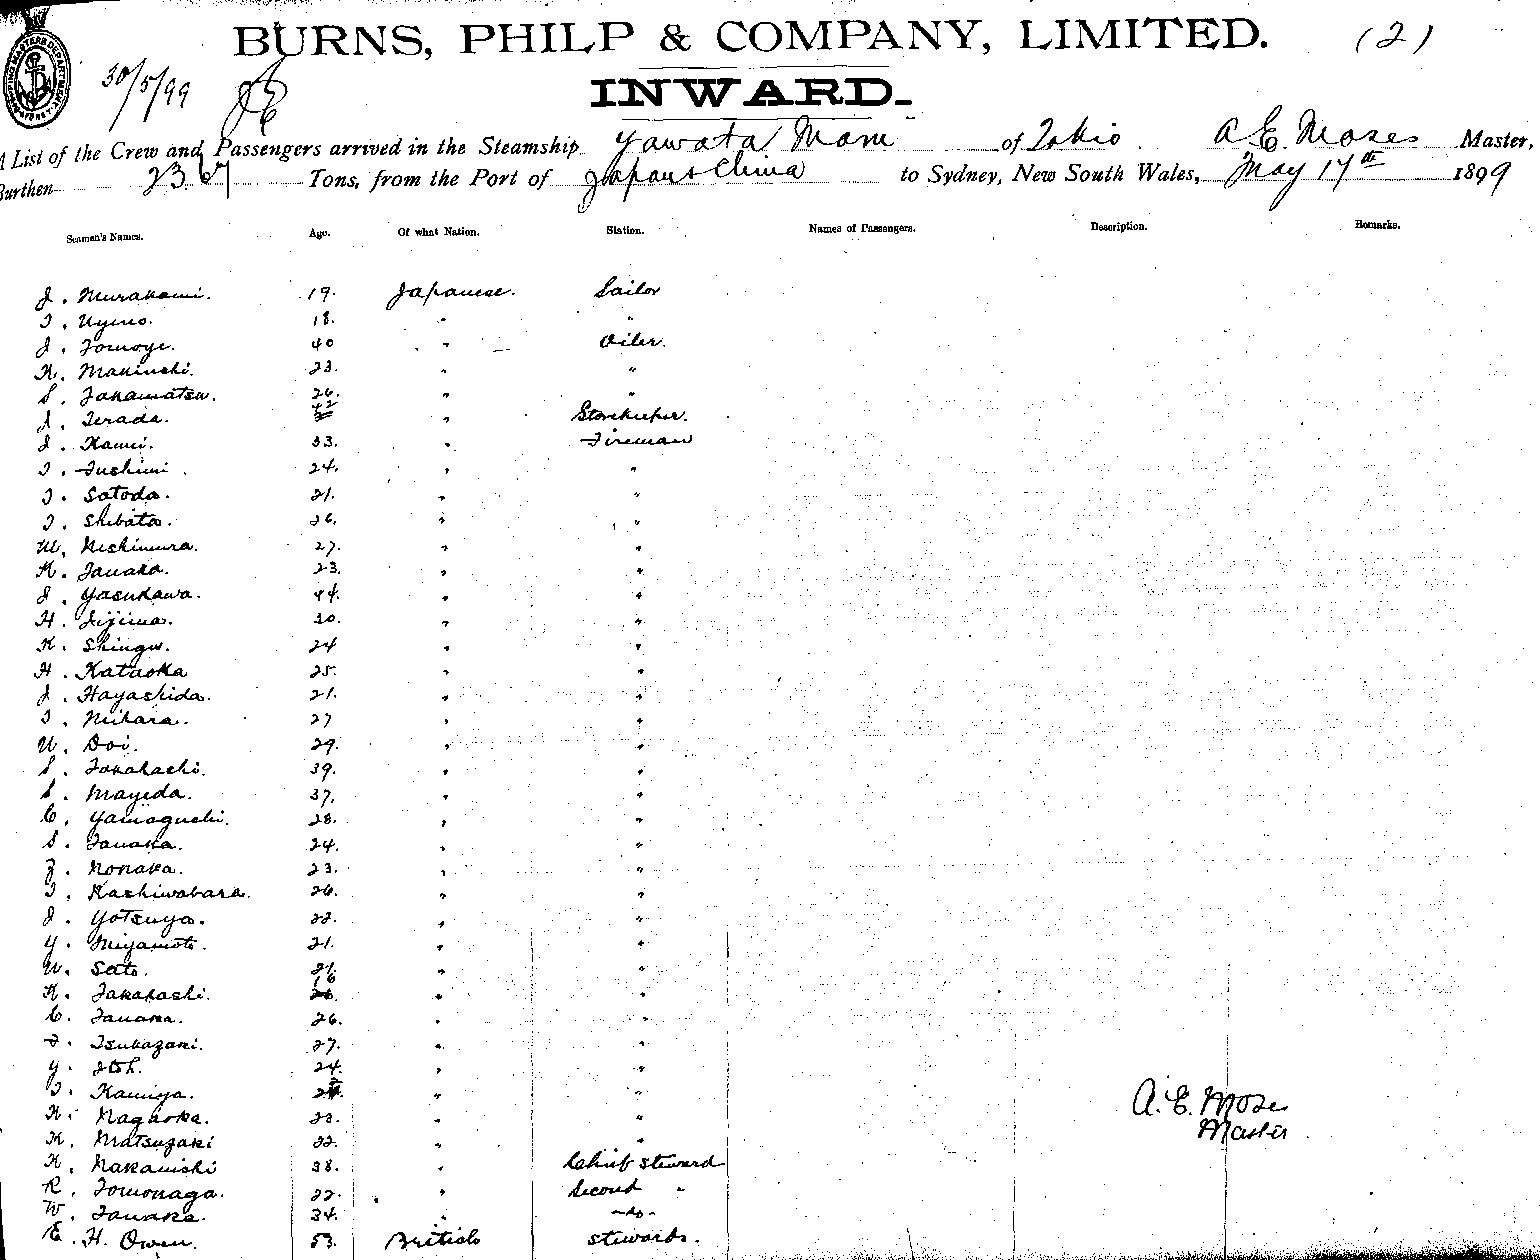 BURNS, PHILP & COMPANY, LIMITED. (2)
30/5/99
INWARD.
A List of the Crew and Passengers arrived in the Steamship Yawata Maru of Tokio A E. Moses Master,
Burthen 2367 Tons, from the Port of Japan & China to Sydney, New South Wales, May 17th 1899
Seamen's Names. Age. Of what Nation. Station. Names of Passengers. Description. Remarks.
J. Murakami. 19. Japanese. Sailor
T. Uyeno. 18. " "
J. Tomoye. 40 " Oiler.
K. Makiuchi. 23. " "
S. Takamatsu. 26. " "
J. Terada. 42 " Storekeeper.
J. Kamei. 33. " Fireman
T. Fushimi. 24. " "
T. Satoda. 21. " "
T. Shibata. 26. " "
M. Nishimura. 27. " "
K. Tanaka. 23. " "
J. Yasukawa. 44. " "
H. Iijima. 30. " "
K. Shingu. 24 " "
H. Kataoka 25. " "
J. Hayashida. 21. " "
T. Mihara. 27 " "
U. Doi. 29. " "
S. Takahashi. 39. " "
S. Mayeda. 37. " "
C. Yamaguchi. 28. " "
S. Tanaka. 24. " "
Z. Nonaka. 23. " "
T. Kashiwabara. 26. " "
J. Yotsuya. 22. " "
Y. Miyamoto. 21. " "
U. Sato. 21. " "
K. Takahashi. 16 " "
C. Tanaka. 26. " "
T. Tsukazaki. 27. " "
Y. Itoh. 24. " "
T. Kamiya. " "
K. Nagaoka. 22. " "
K. Matsuzaki 22. " "
K. Nakanishi 38. " Chief steward
R. Tomonaga. 22. " Second "
W. Tanaka. 34. " -do-
E. H. Owen. 53. British stewards.
A. E. Moses
Master